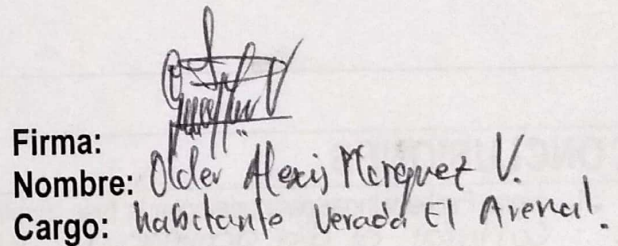 Firma:
Nombre: Older Alexis Marquez V.
Cargo: habitante Verada El Arenal.